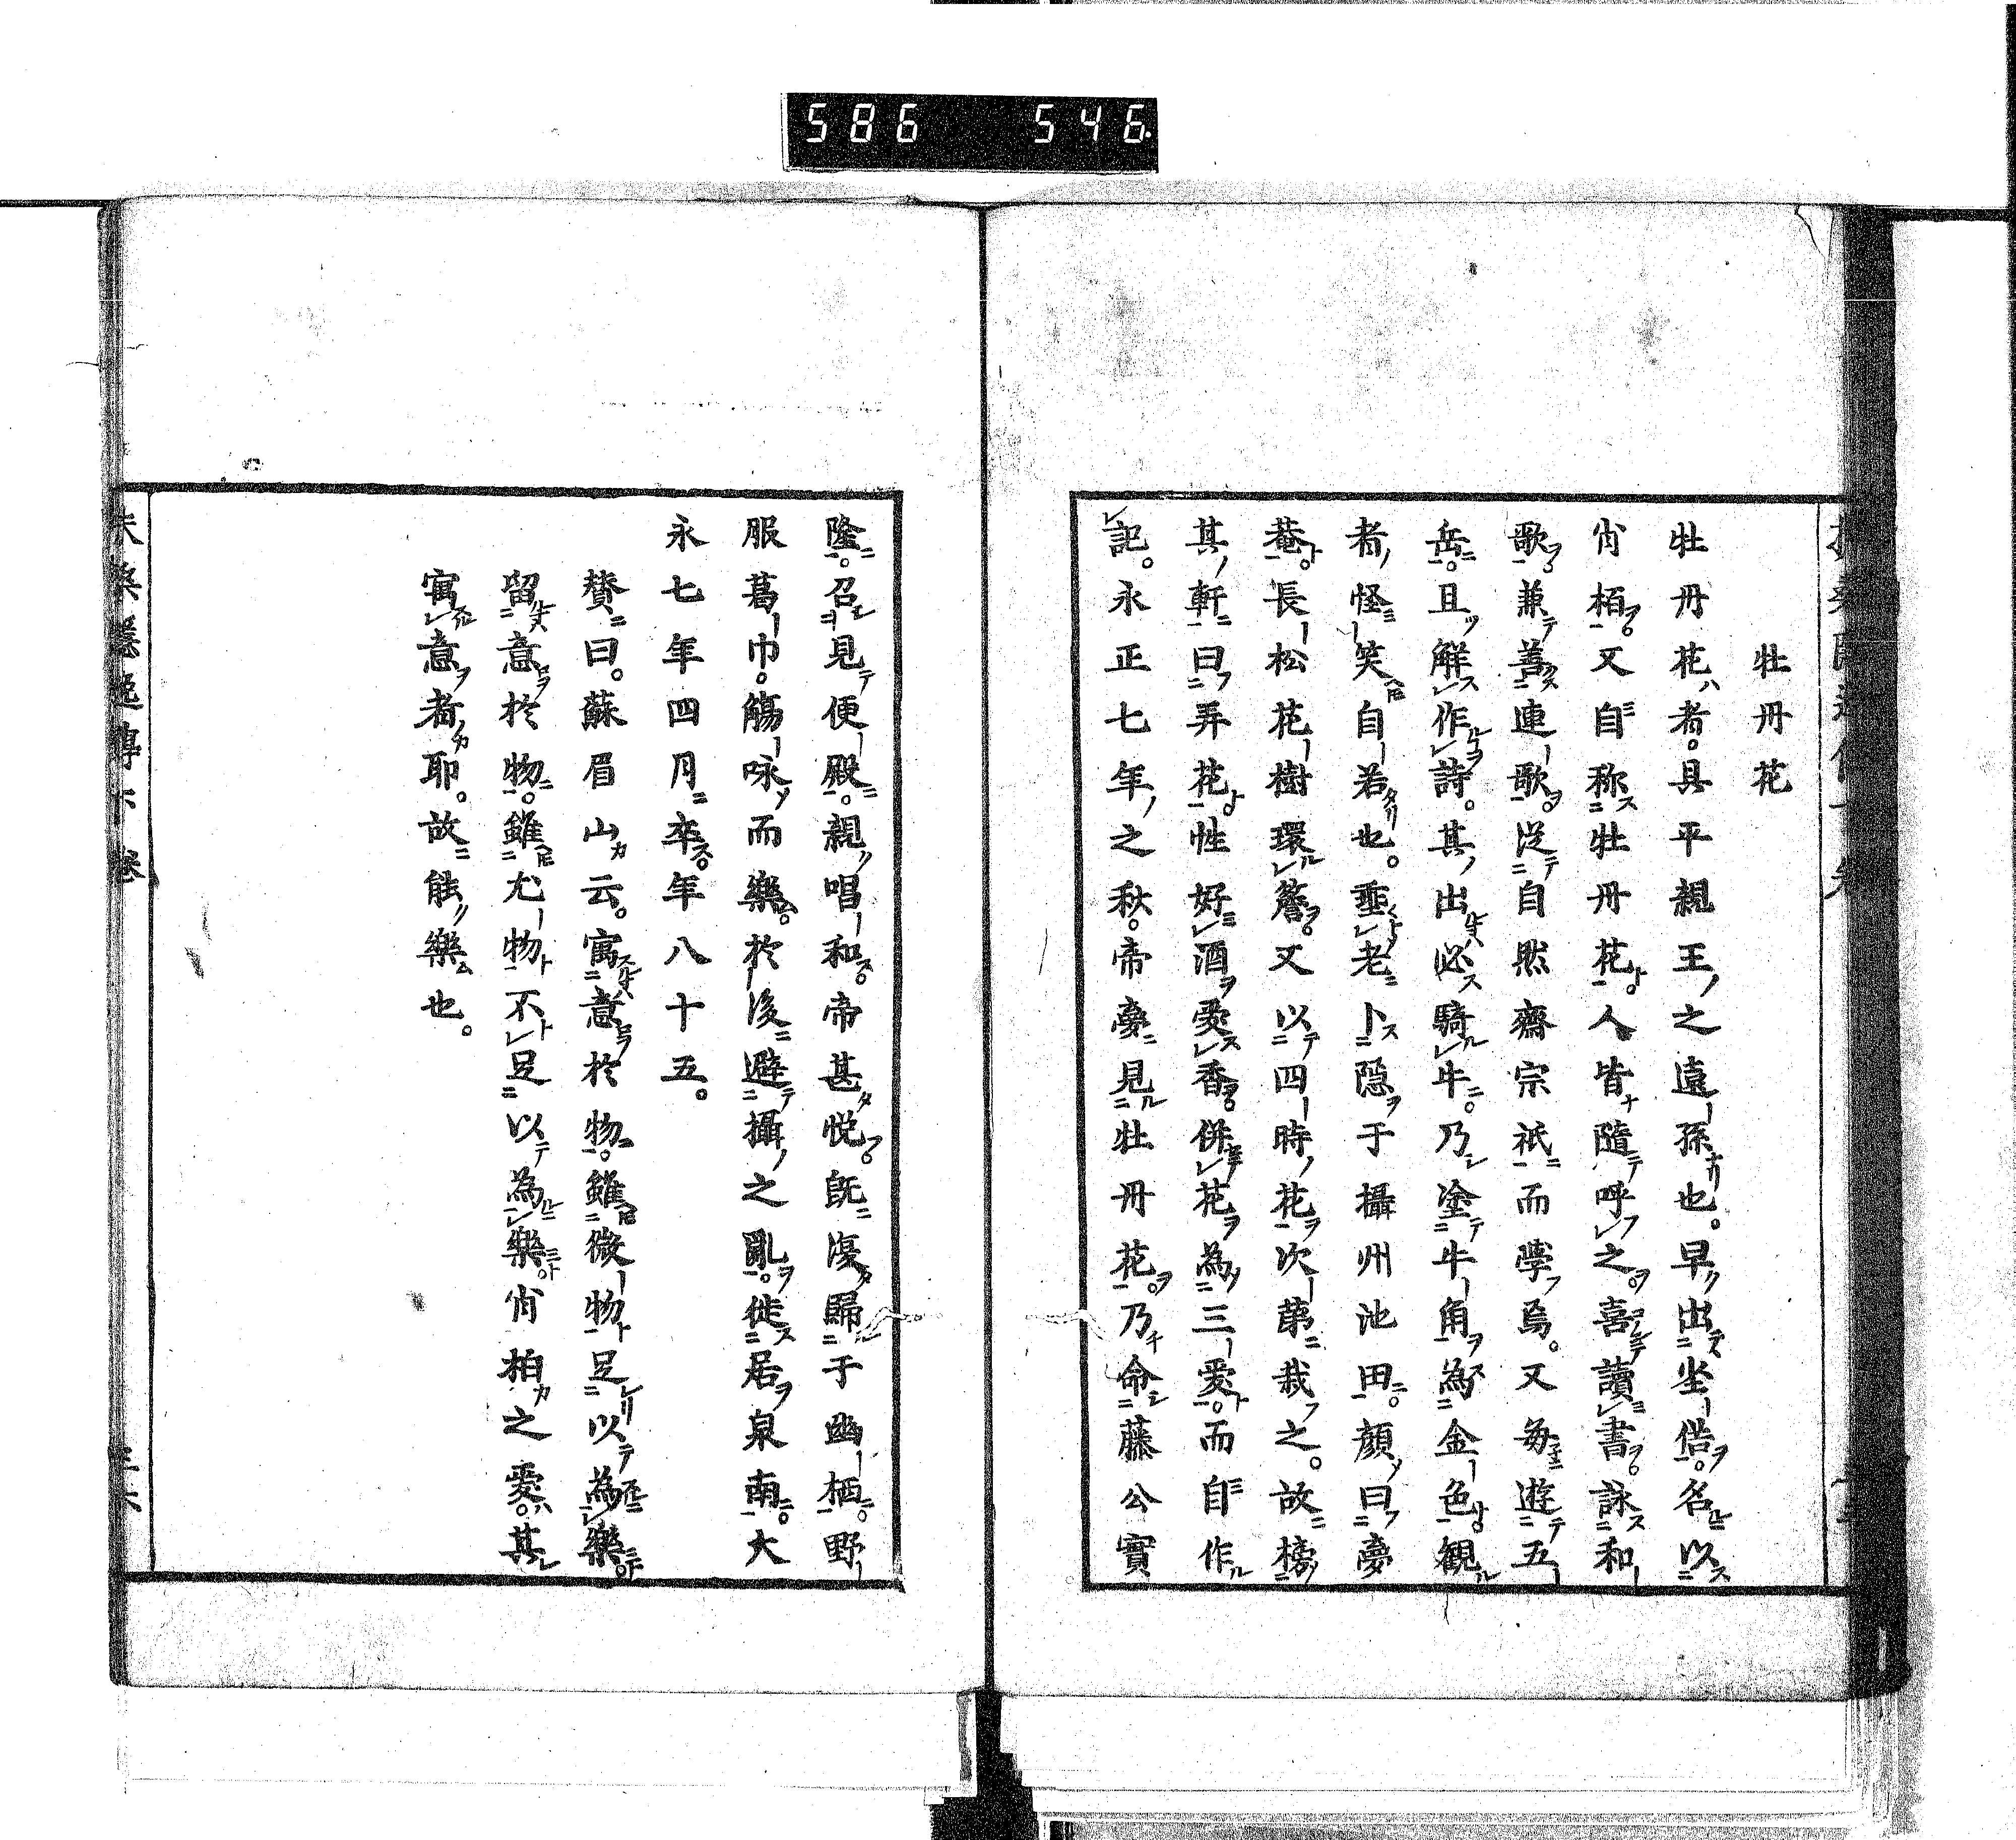 586 546
牡丹花
牡丹花者。具平親王之遠孫也。早出坐倍。名以
肖栢。又自称牡丹花。人皆隨呼之。喜讀書。詠和
歌。兼善連歌。從自然齋宗祇而學焉。又易遊五
岳。且解作詩。其出必騎牛。乃塗牛角為金色。観
者怪笑自若也。垂老卜隠于攝州池田。顔曰夢
菴。長松花樹環簷。又以四時花次第栽之。故榜
其軒曰弄花。性好酒愛香。併花為三愛。而自作
記。永正七年之秋。帝夢見牡丹花。乃命藤公實
隆。召見便殿。親唱和。帝甚悦。既復歸于幽栖。野
服葛巾。觴咏而樂。於後避攝之亂。徙居泉南。大
永七年四月卒。年八十五。
賛曰。蘇眉山云。寓意於物。雖微物足以為樂。
留意於物。雖尤物不足以為樂。肖柏之愛。其
寓意者耶。故能樂也。
扶桑隱逸傳下卷